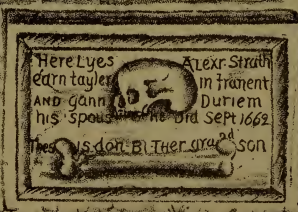 Here Lyes Alexr Strath
earn tayler in tranent
AND gann Duriem
his spous he Did Sept 1662
is don BI Ther grand son